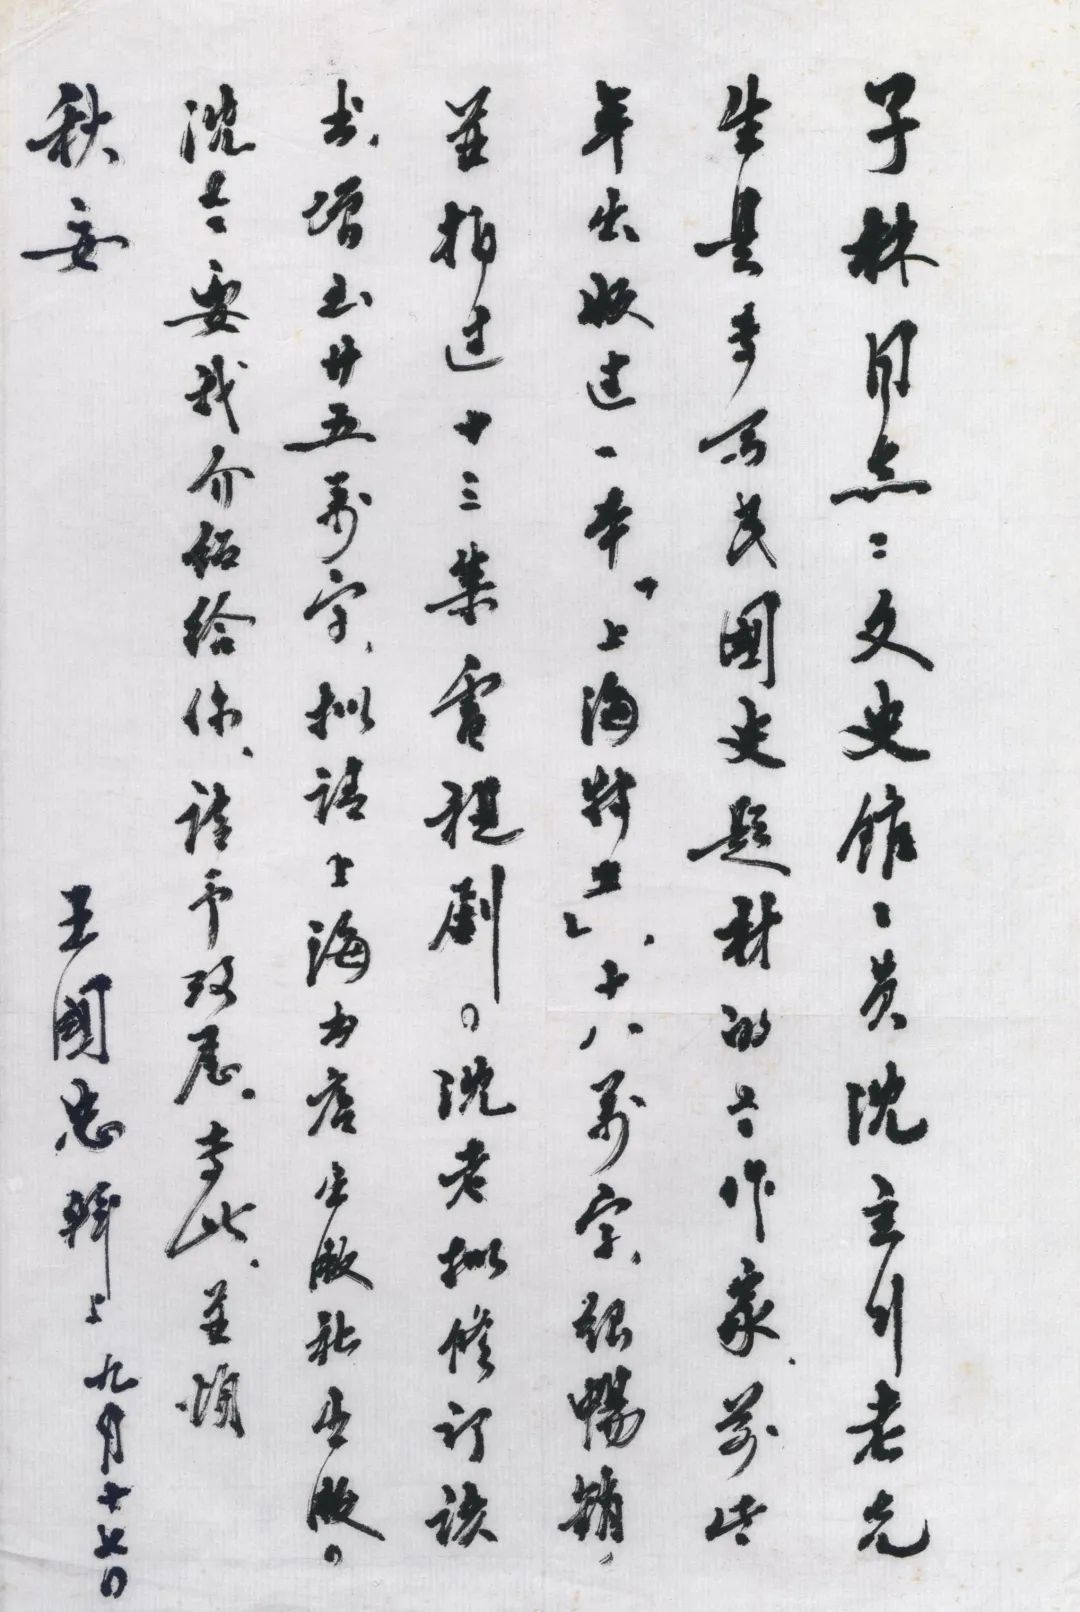 子林同志：文史馆馆员沈立行老先
生是专写民國史题材的老作家、前些
年出版过一本“上海特工”、十八萬字、很暢銷、
並拍过十三集電視劇。沈老拟修订该
书、增至廿五萬字、拟请上海书店出版社出版。
沈老要我介绍给你、请予政屋、专此、並頌
秋安
王國忠 九月十七日